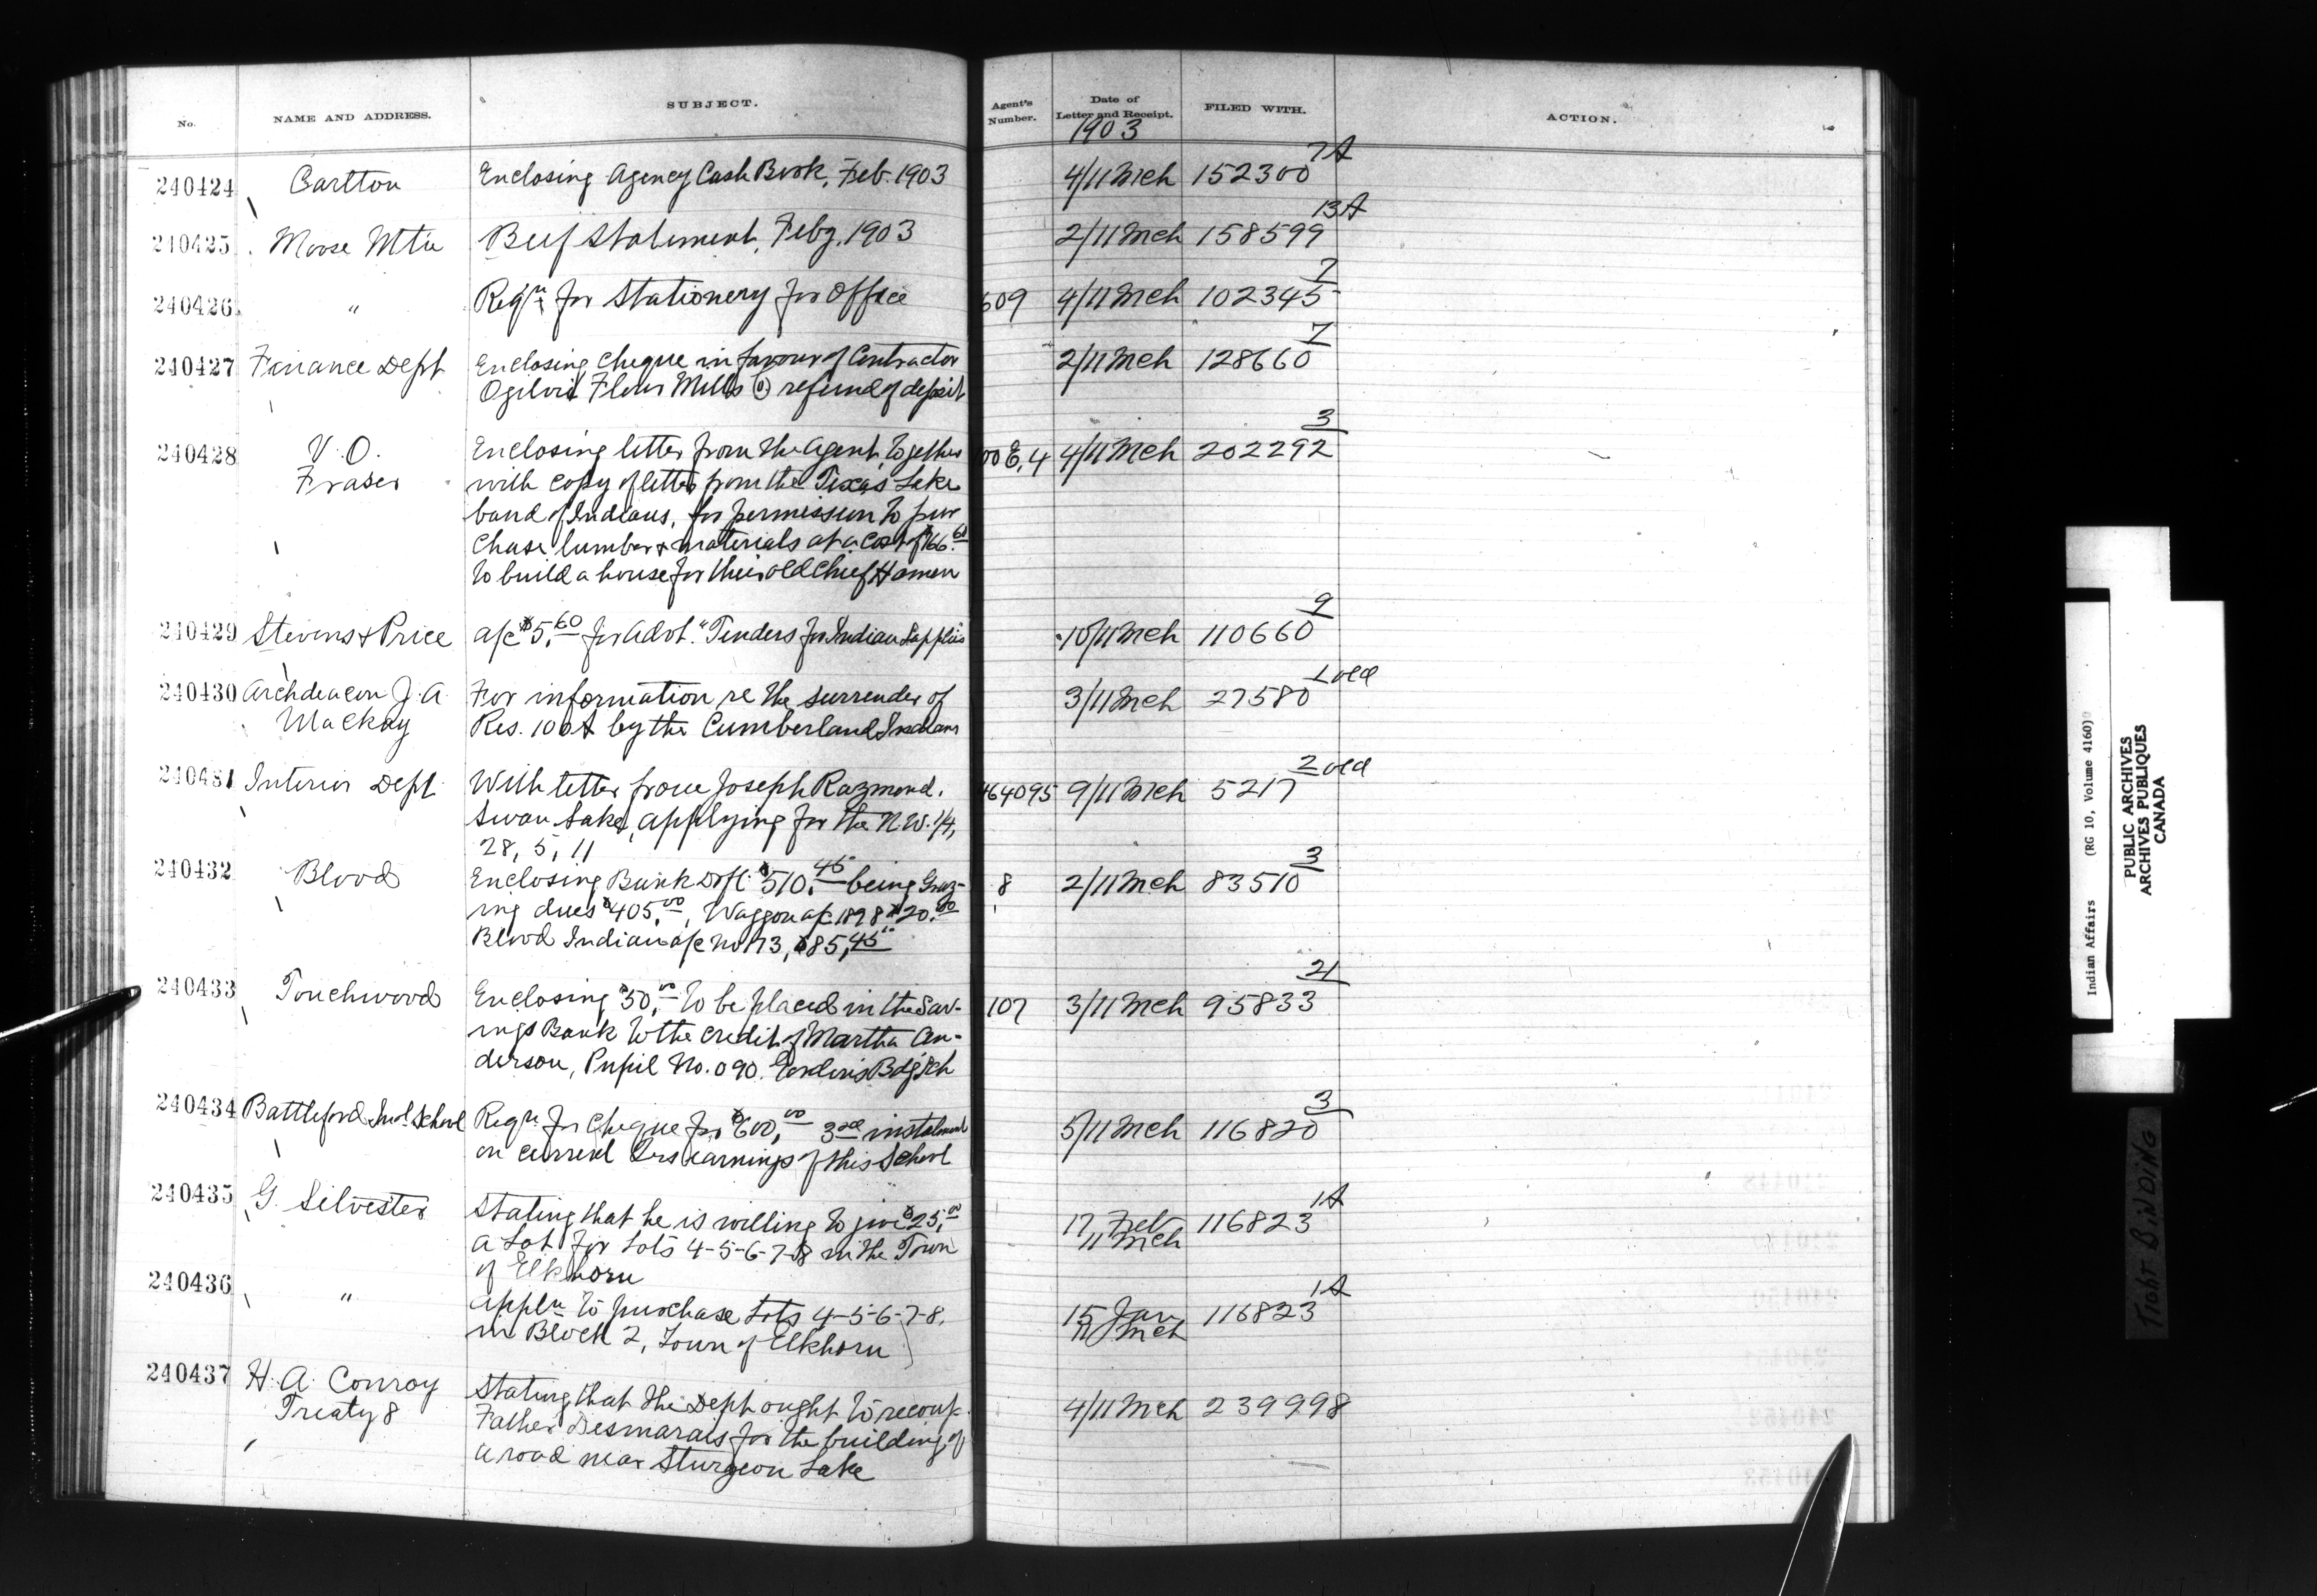 No. NAME AND ADDRESS. SUBJECT. Agent's Number. Date of Letter and Receipt. FILED WITH. ACTION.
1903
240424 Carlton Enclosing Agency Cash Book, Feb. 1903 4/11 Mch 152300 7A
240425 Moose Mtn Beef Statement, Feby. 1903 2/11 Mch 158599 13A
240426 " Reqn for Stationery for Office 609 4/11 Mch 102345 7
240427 Finance Dept Enclosing Cheque in favour of Contractor 2/11 Mch 128660 7
Ogilvie Flour Mills Co refund of deposit
240428 V. O. Enclosing letter from the Agent, together 00E,4 4/11 Mch 202292 3
Fraser with copy of letter from the Texas Lake
band of Indians, for permission to pur
chase lumber & materials at a cost of $66.60
to build a house for their old Chief
240429 Stevens & Price a/c $5.60 for Advt. "Tenders for Indian Supplies 10/11 Mch 110660 9
240430 Archdeacon J. A. For information re the surrender of 3/11 Mch 27580 1 old
Mackay Res. 100A by the Cumberland Indians
240431 Interior Dept. With letter from Joseph Razmond. 464095 9/11 Mch 5217 2 old
Swan Lake, applying for the N.W. 1/4,
28, 5, 11
240432 Blood Enclosing Bank Dft. $510.45 being Graz- 8 2/11 Mch 83510 3
ing dues $405.00, Waggon a/c 1898 $20.00
Blood Indian a/c No 173, $85.45
240433 Touchwood Enclosing $50.00 to be placed in the Sav- 107 3/11 Mch 95833 21
ings Bank to the credit of Martha An-
derson, Pupil No. 090. Gordon's Bdg Sch
240434 Battleford Ind. School Reqn. for Cheque for $600.00 3rd instalment 5/11 Mch 116820 3
on current earnings of this School
240435 G. Silvester Stating that he is willing to give $25.00 17 Feb 116823 1A
a Lot for Lots 4-5-6-7-8 in the Town 11 Mch
of Elkhorn
240436 " Appln to purchase Lots 4-5-6-7-8. 15 Jan 116823 1A
in Block 2, Town of Elkhorn 11 Mch
240437 H. A. Conroy Stating that the Dept ought to recoup 4/11 Mch 239998
Treaty 8 Father Desmarais for the building of
a road near Sturgeon Lake
Indian Affairs (RG 10, Volume 4160)
PUBLIC ARCHIVES
ARCHIVES PUBLIQUES
CANADA
TIGHT BINDING